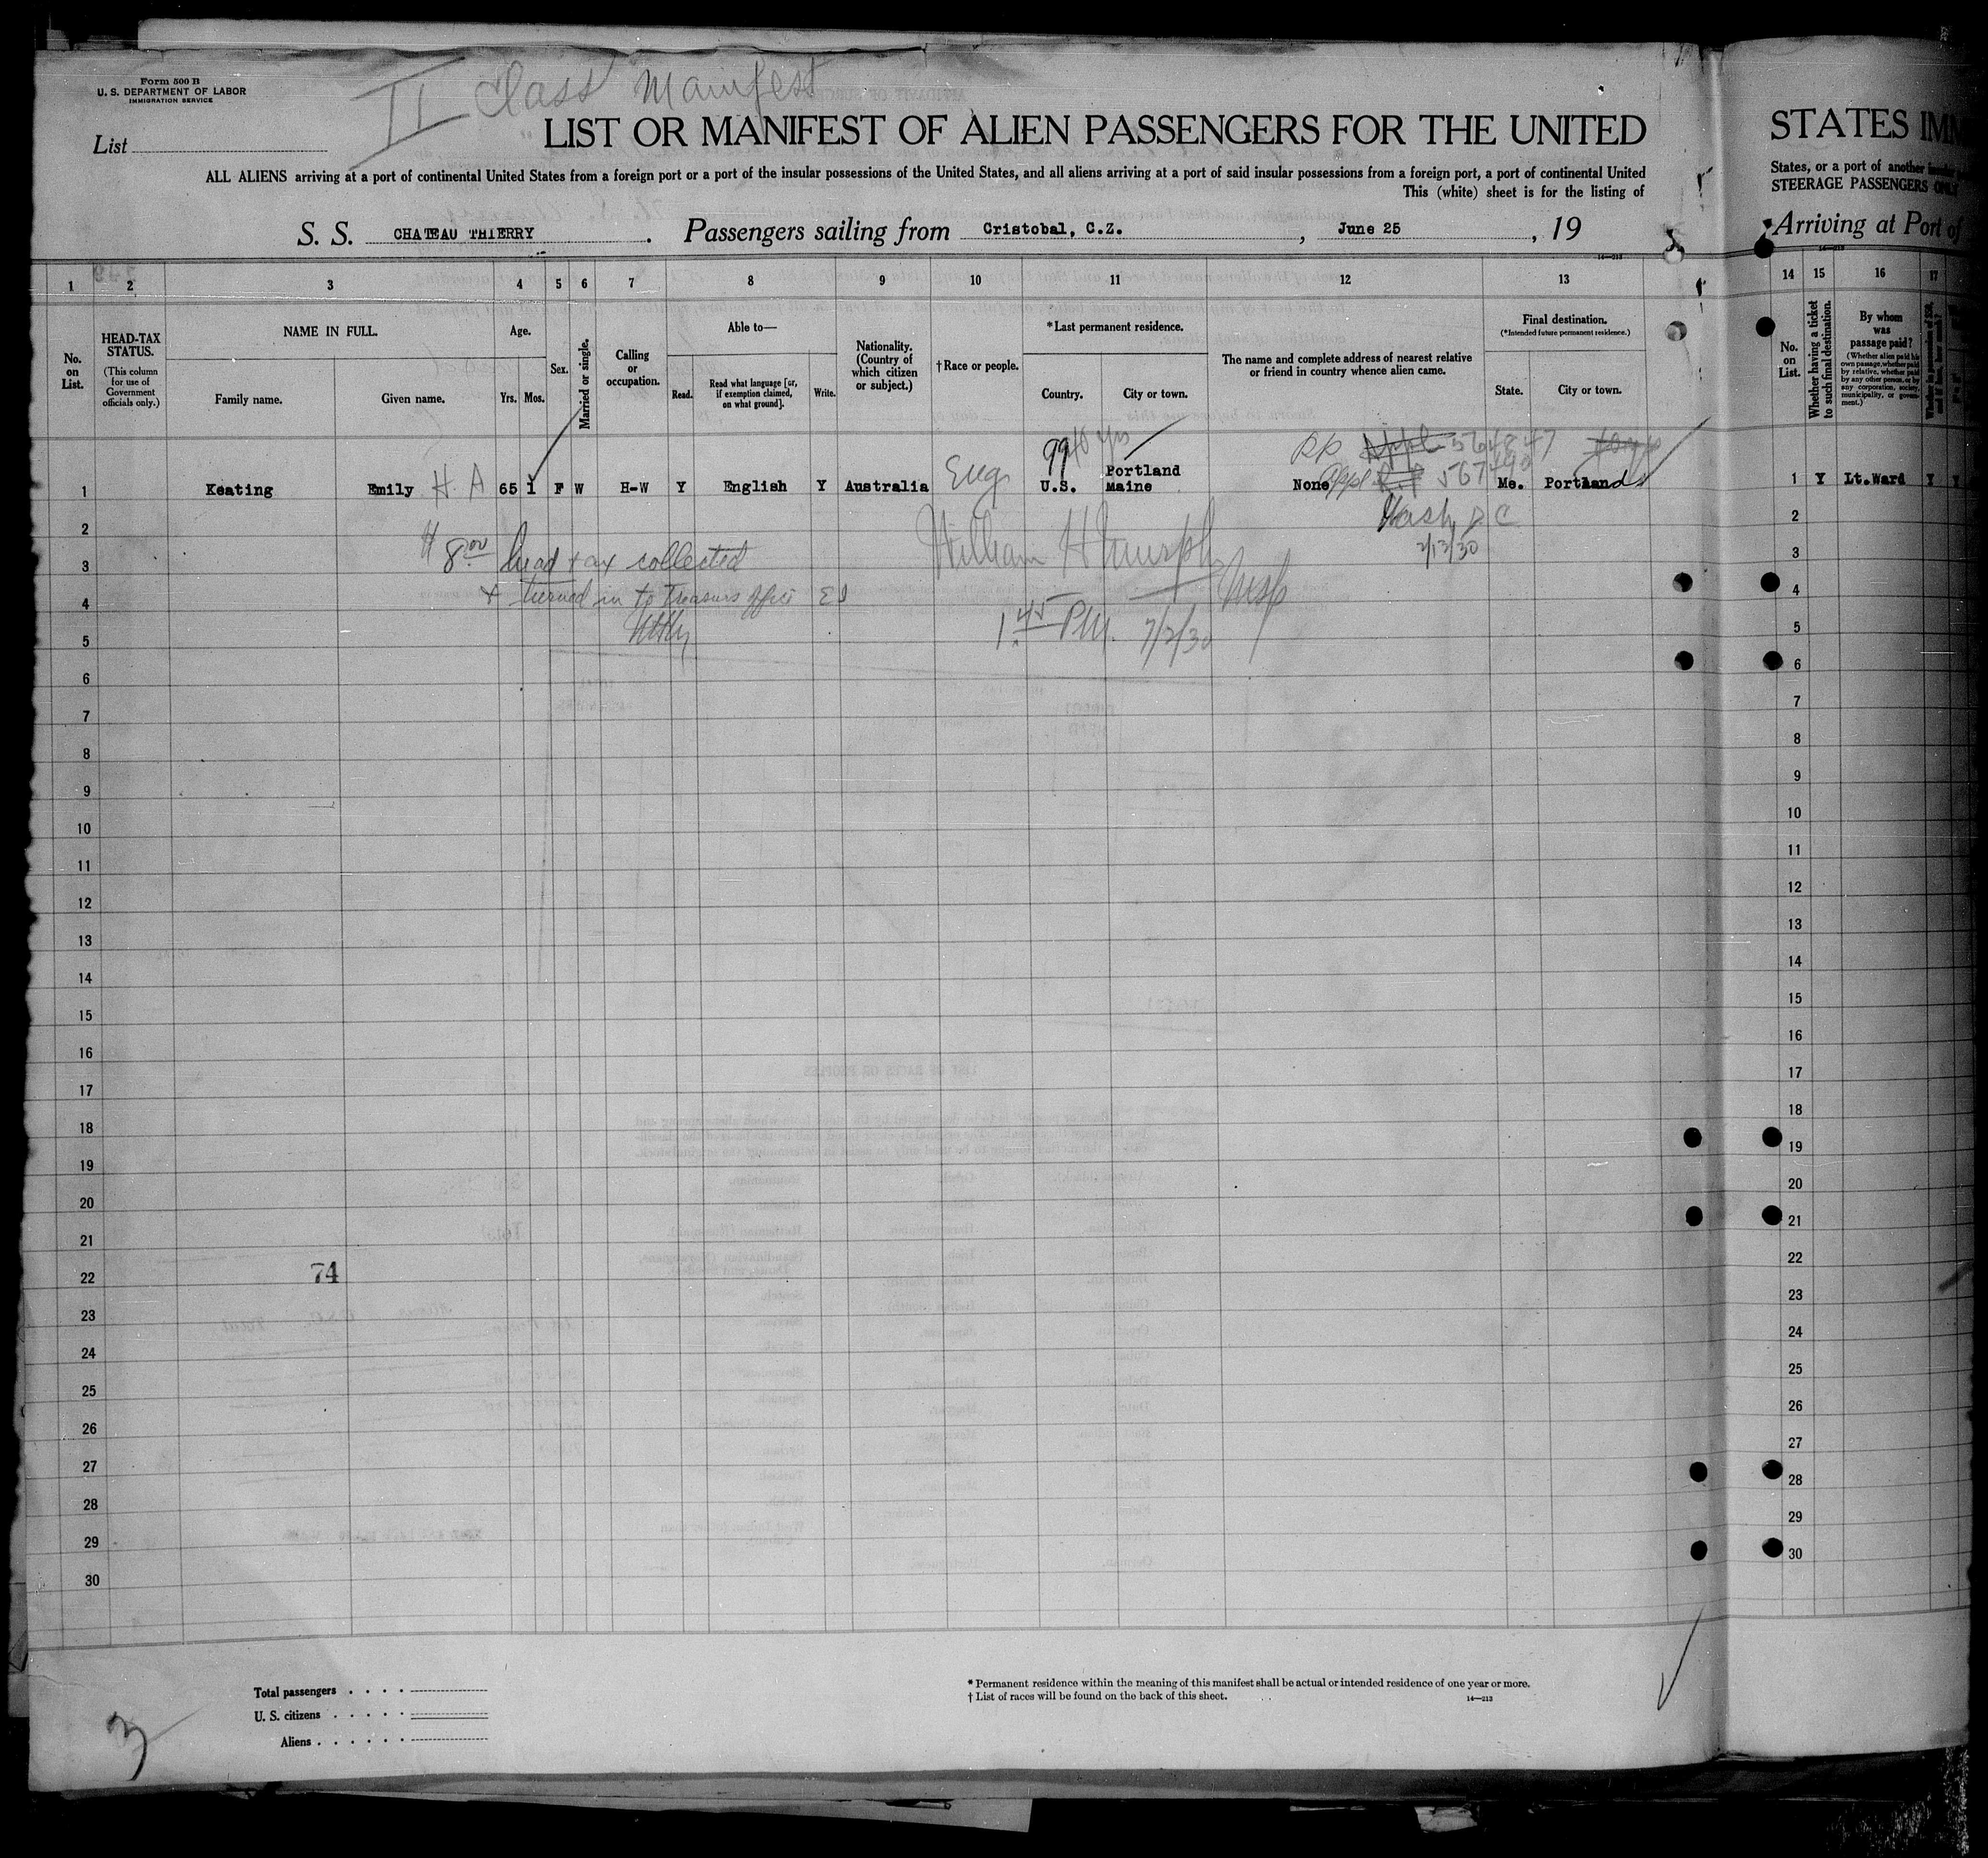 Form 500 B
U. S. DEPARTMENT OF LABOR
IMMIGRATION SERVICE
II Class Manifest
List
LIST OR MANIFEST OF ALIEN PASSENGERS FOR THE UNITED
ALL ALIENS arriving at a port of continental United States from a foreign port or a port of the insular possessions of the United States, and all aliens arriving at a port of said insular possessions from a foreign port, a port of continental United
This (white) sheet is for the listing of
S. S. CHATEAU THIERRY . Passengers sailing from Cristobal, C.Z. , June 25 , 19
1 2 3 4 5 6 7 8 9 10 11 12 13
No. on List.
HEAD-TAX STATUS.
(This column for use of Government officials only.)
NAME IN FULL.
Family name. Given name.
Age.
Yrs. Mos.
Sex.
Married or single.
Calling or occupation.
Able to—
Read. Read what language [or, if exemption claimed, on what ground]. Write.
Nationality. (Country of which citizen or subject.)
† Race or people.
*Last permanent residence.
Country. City or town.
The name and complete address of nearest relative or friend in country whence alien came.
Final destination.
(*Intended future permanent residence.)
State. City or town.
99 40 yrs
RR 564847
1 Keating Emily H. A 65 1 F W H-W Y English Y Australia Eng. U.S. Portland Maine None Appl 567490 Me. Portland
Wash D C
$8.00 head tax collected
+ turned in to Treasurs office E I
William H Murphy
Insp
1.45 PM. 7/2/30
2
3
4
5
6
7
8
9
10
11
12
13
14
15
16
17
18
19
20
21
22
74
23
24
25
26
27
28
29
30
Total passengers . . . .
U. S. citizens . . . . .
Aliens . . . . . .
* Permanent residence within the meaning of this manifest shall be actual or intended residence of one year or more.
† List of races will be found on the back of this sheet.
14—213
3
STATES IMM
States, or a port of another
STEERAGE PASSENGERS ONLY
Arriving at Port of
14 15 16 17
No. on List.
Whether having a ticket to such final destination.
By whom was passage paid?
(Whether alien paid his own passage, whether paid by relative, whether paid by any other person, or by any corporation, society, municipality, or government.)
1 Y Lt.Ward Y
2
3
4
5
6
7
8
9
10
11
12
13
14
15
16
17
18
19
20
21
22
23
24
25
26
27
28
29
30